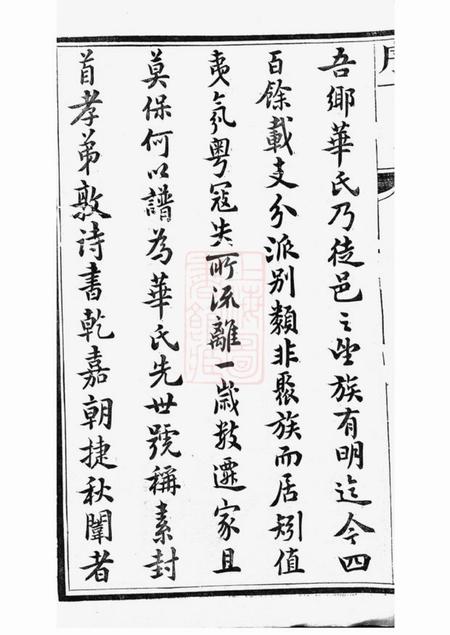 吾鄉華氏乃徙邑之望族有明迄今四
百餘載支分派别類非聚族而居矧值
夷氛粤寇失所流離一歲數遷家且
莫保何以譜為華氏先世號稱素封
首孝弟敦詩書乾嘉朝捷秋闈者